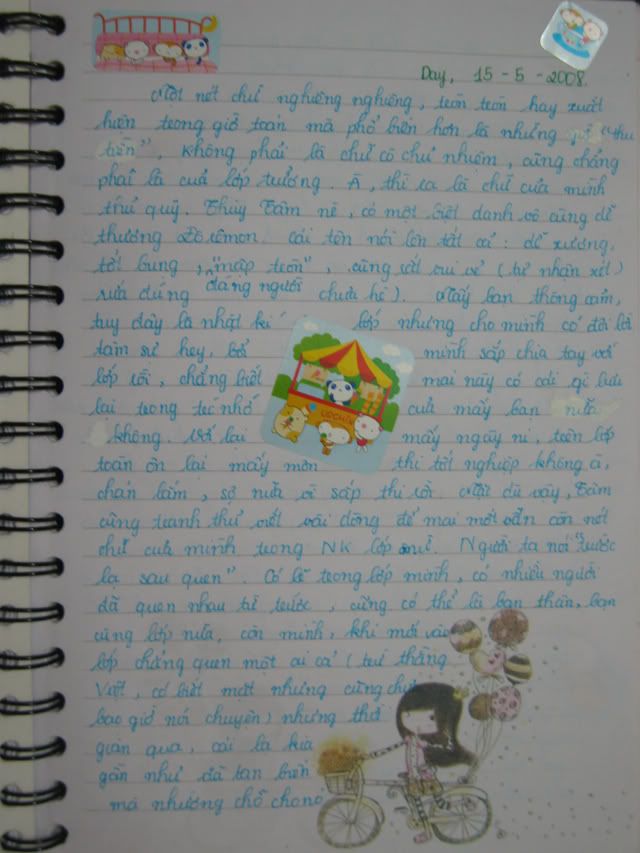 Day, 15 - 5 - 2008.
Một nét chữ nghiêng nghiêng, tròn tròn hay xuất
hiện trong giờ toán mà phổ biến hơn là những "thu
tiền", không phải là chữ cô chủ nhiệm, cũng chẳng
phải là của lớp trưởng. À, thì ra là chữ của mình
thủ quỹ. Thùy Trâm nè, có một biệt danh vô cùng dễ
thương Đôrêmon. Cái tên nói lên tất cả: dễ xương,
tốt bụng, "mập tròn", cũng rất vui vẻ (tự nhận xét)
dáng người
xưa đúng chưa hè). Mấy bạn thông cảm,
tuy đây là nhật kí lớp nhưng cho mình có đôi lời
tâm sự hey, bởi mình sắp chia tay với
lớp rồi, chẳng biết mai này có cái gì lưu
lại trong trí nhớ của mấy bạn nữa
không. Với lại mấy ngày ni, trên lớp
toàn ôn lại mấy môn thi tốt nghiệp không à,
chán lắm, sợ nữa vì sắp thi rồi. Mặc dù vậy, Trâm
cũng tranh thủ viết vài dòng để mai mốt vẫn còn nét
chữ của mình trong NK lớp chứ. Người ta nói "trước
lạ sau quen". Có lẽ trong lớp mình, có nhiều người
đã quen nhau từ trước, cũng có thể là bạn thân, bạn
cùng lớp nữa, còn mình, khi mới vào
lớp chẳng quen một ai cả (trừ thằng
Việt, có biết mặt nhưng cũng chưa
bao giờ nói chuyện) nhưng thời
gian qua, cái lạ kia
gần như đã tan biến
mà nhường chỗ cho